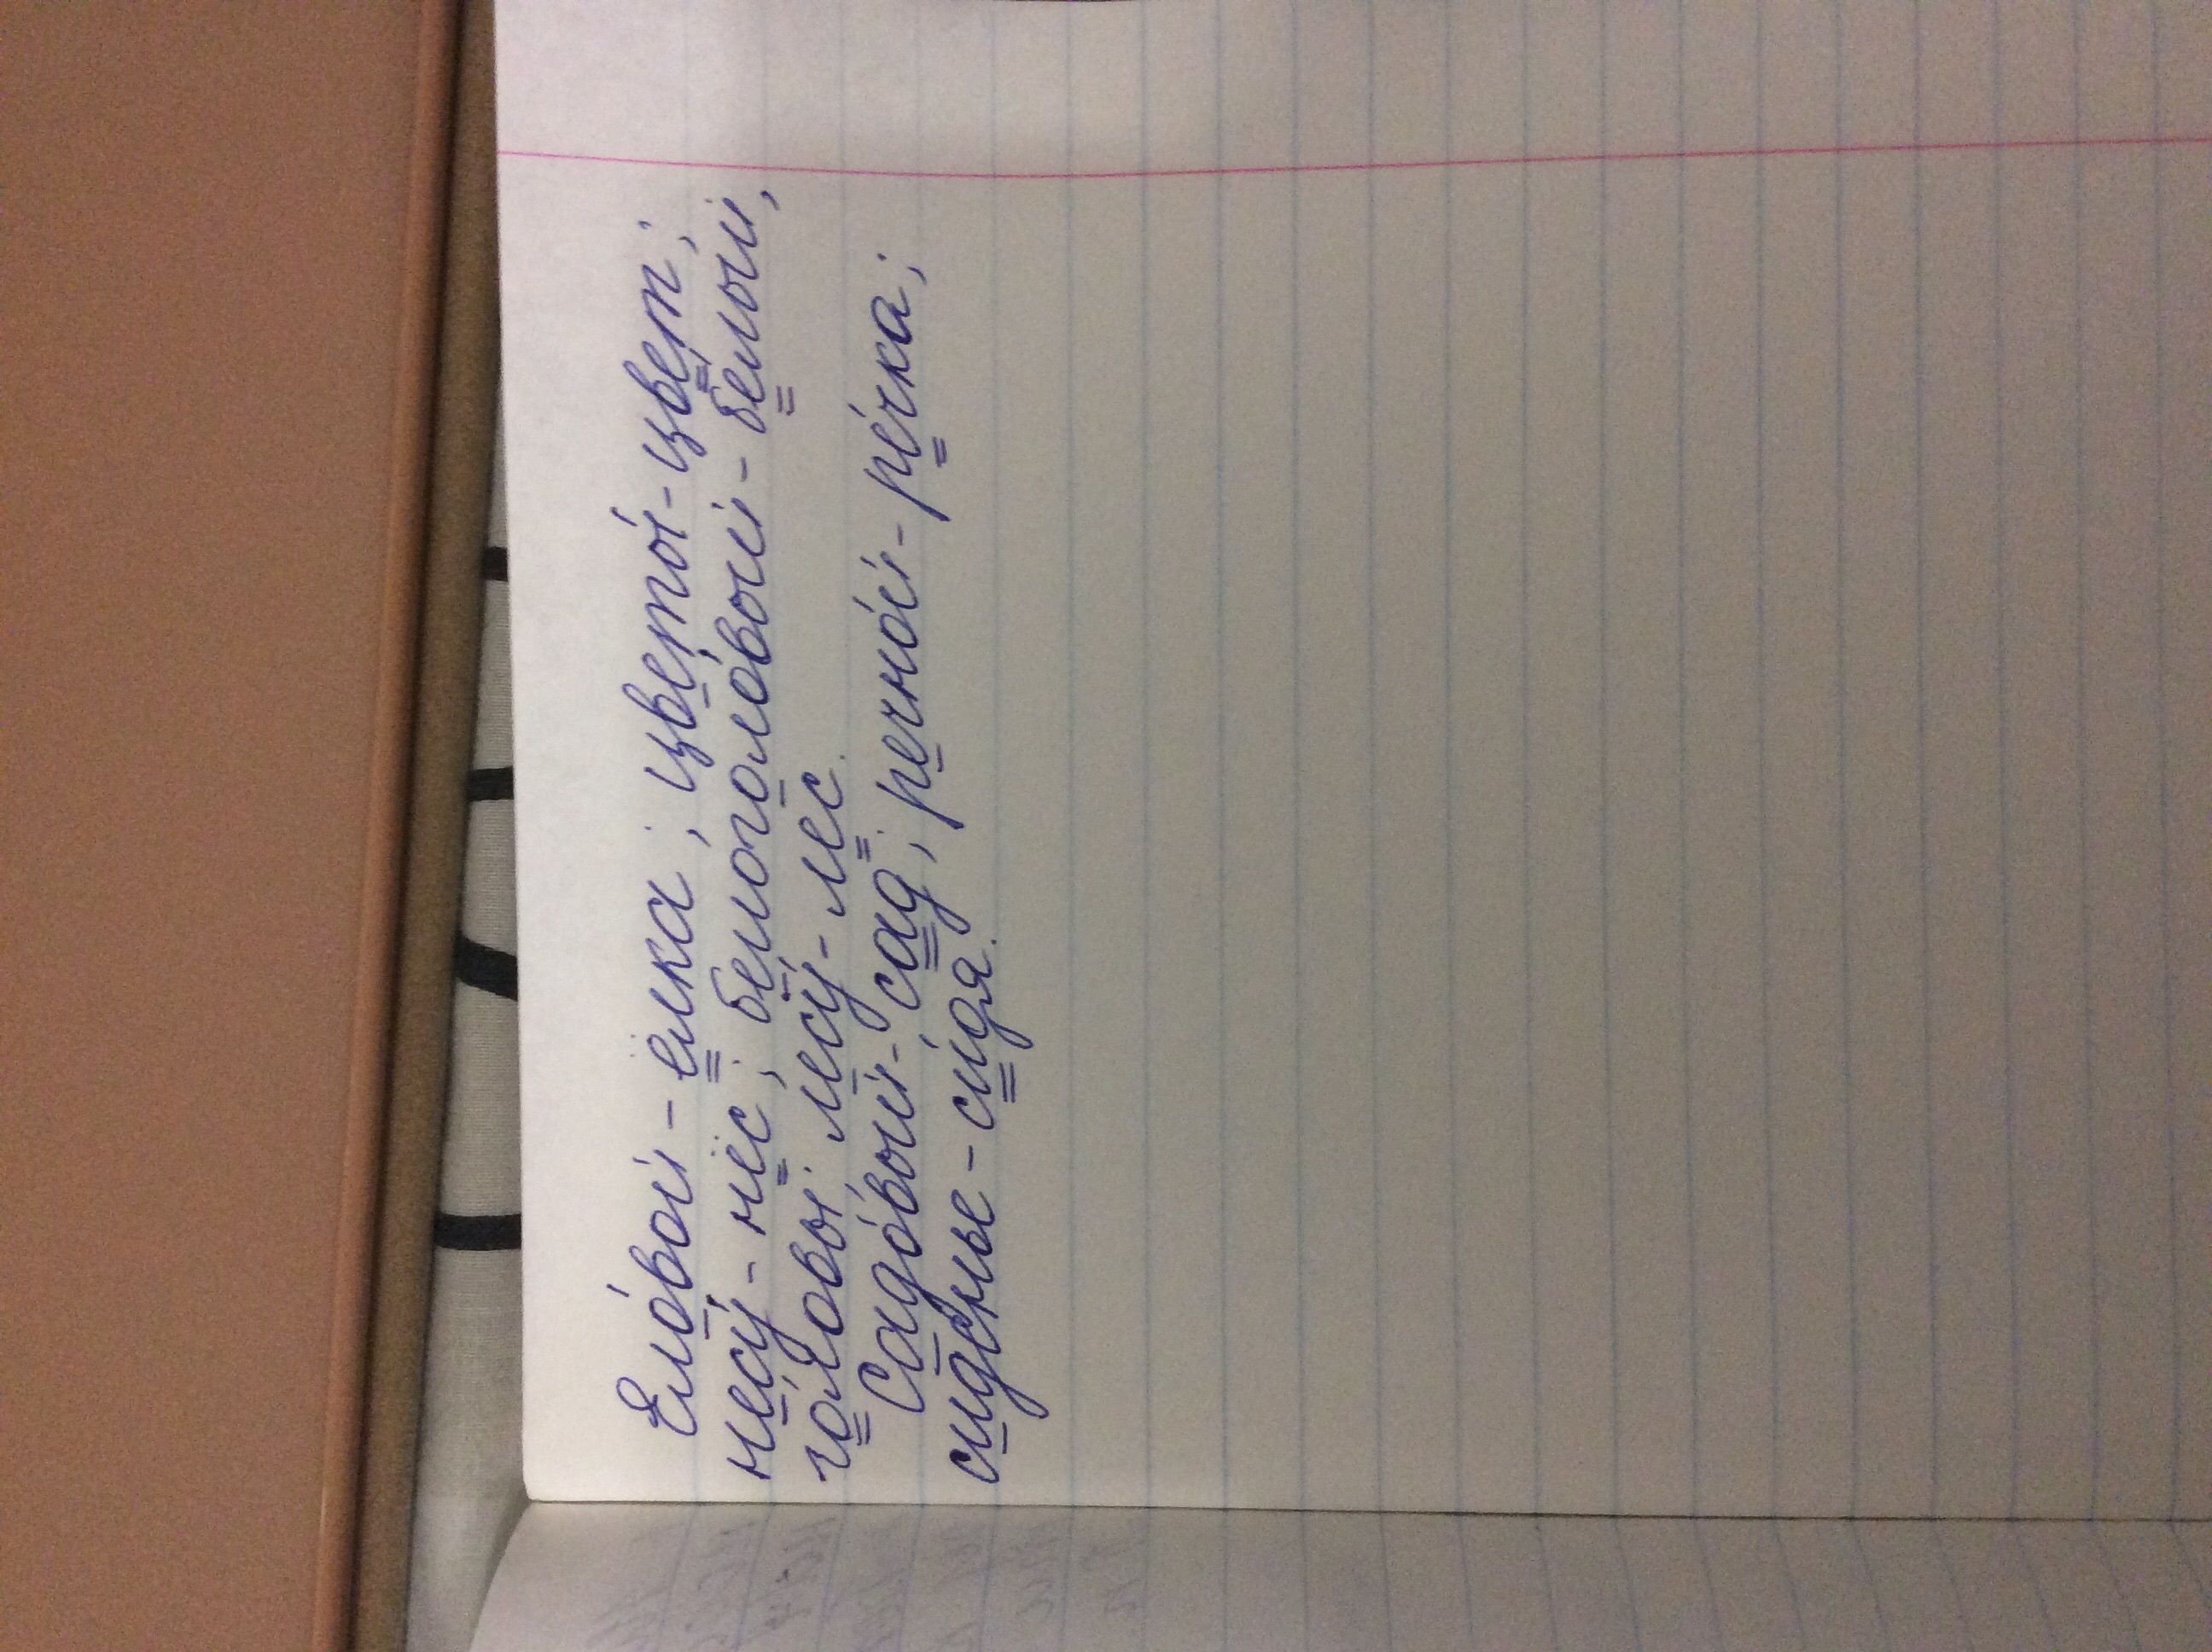 Еловой - ёлка; цветой - цвет;
несу - нёс; белоголовый - белый,
головы. лесу - лес.
Садовый - сад; речной - речка;
сиденье - сидя.